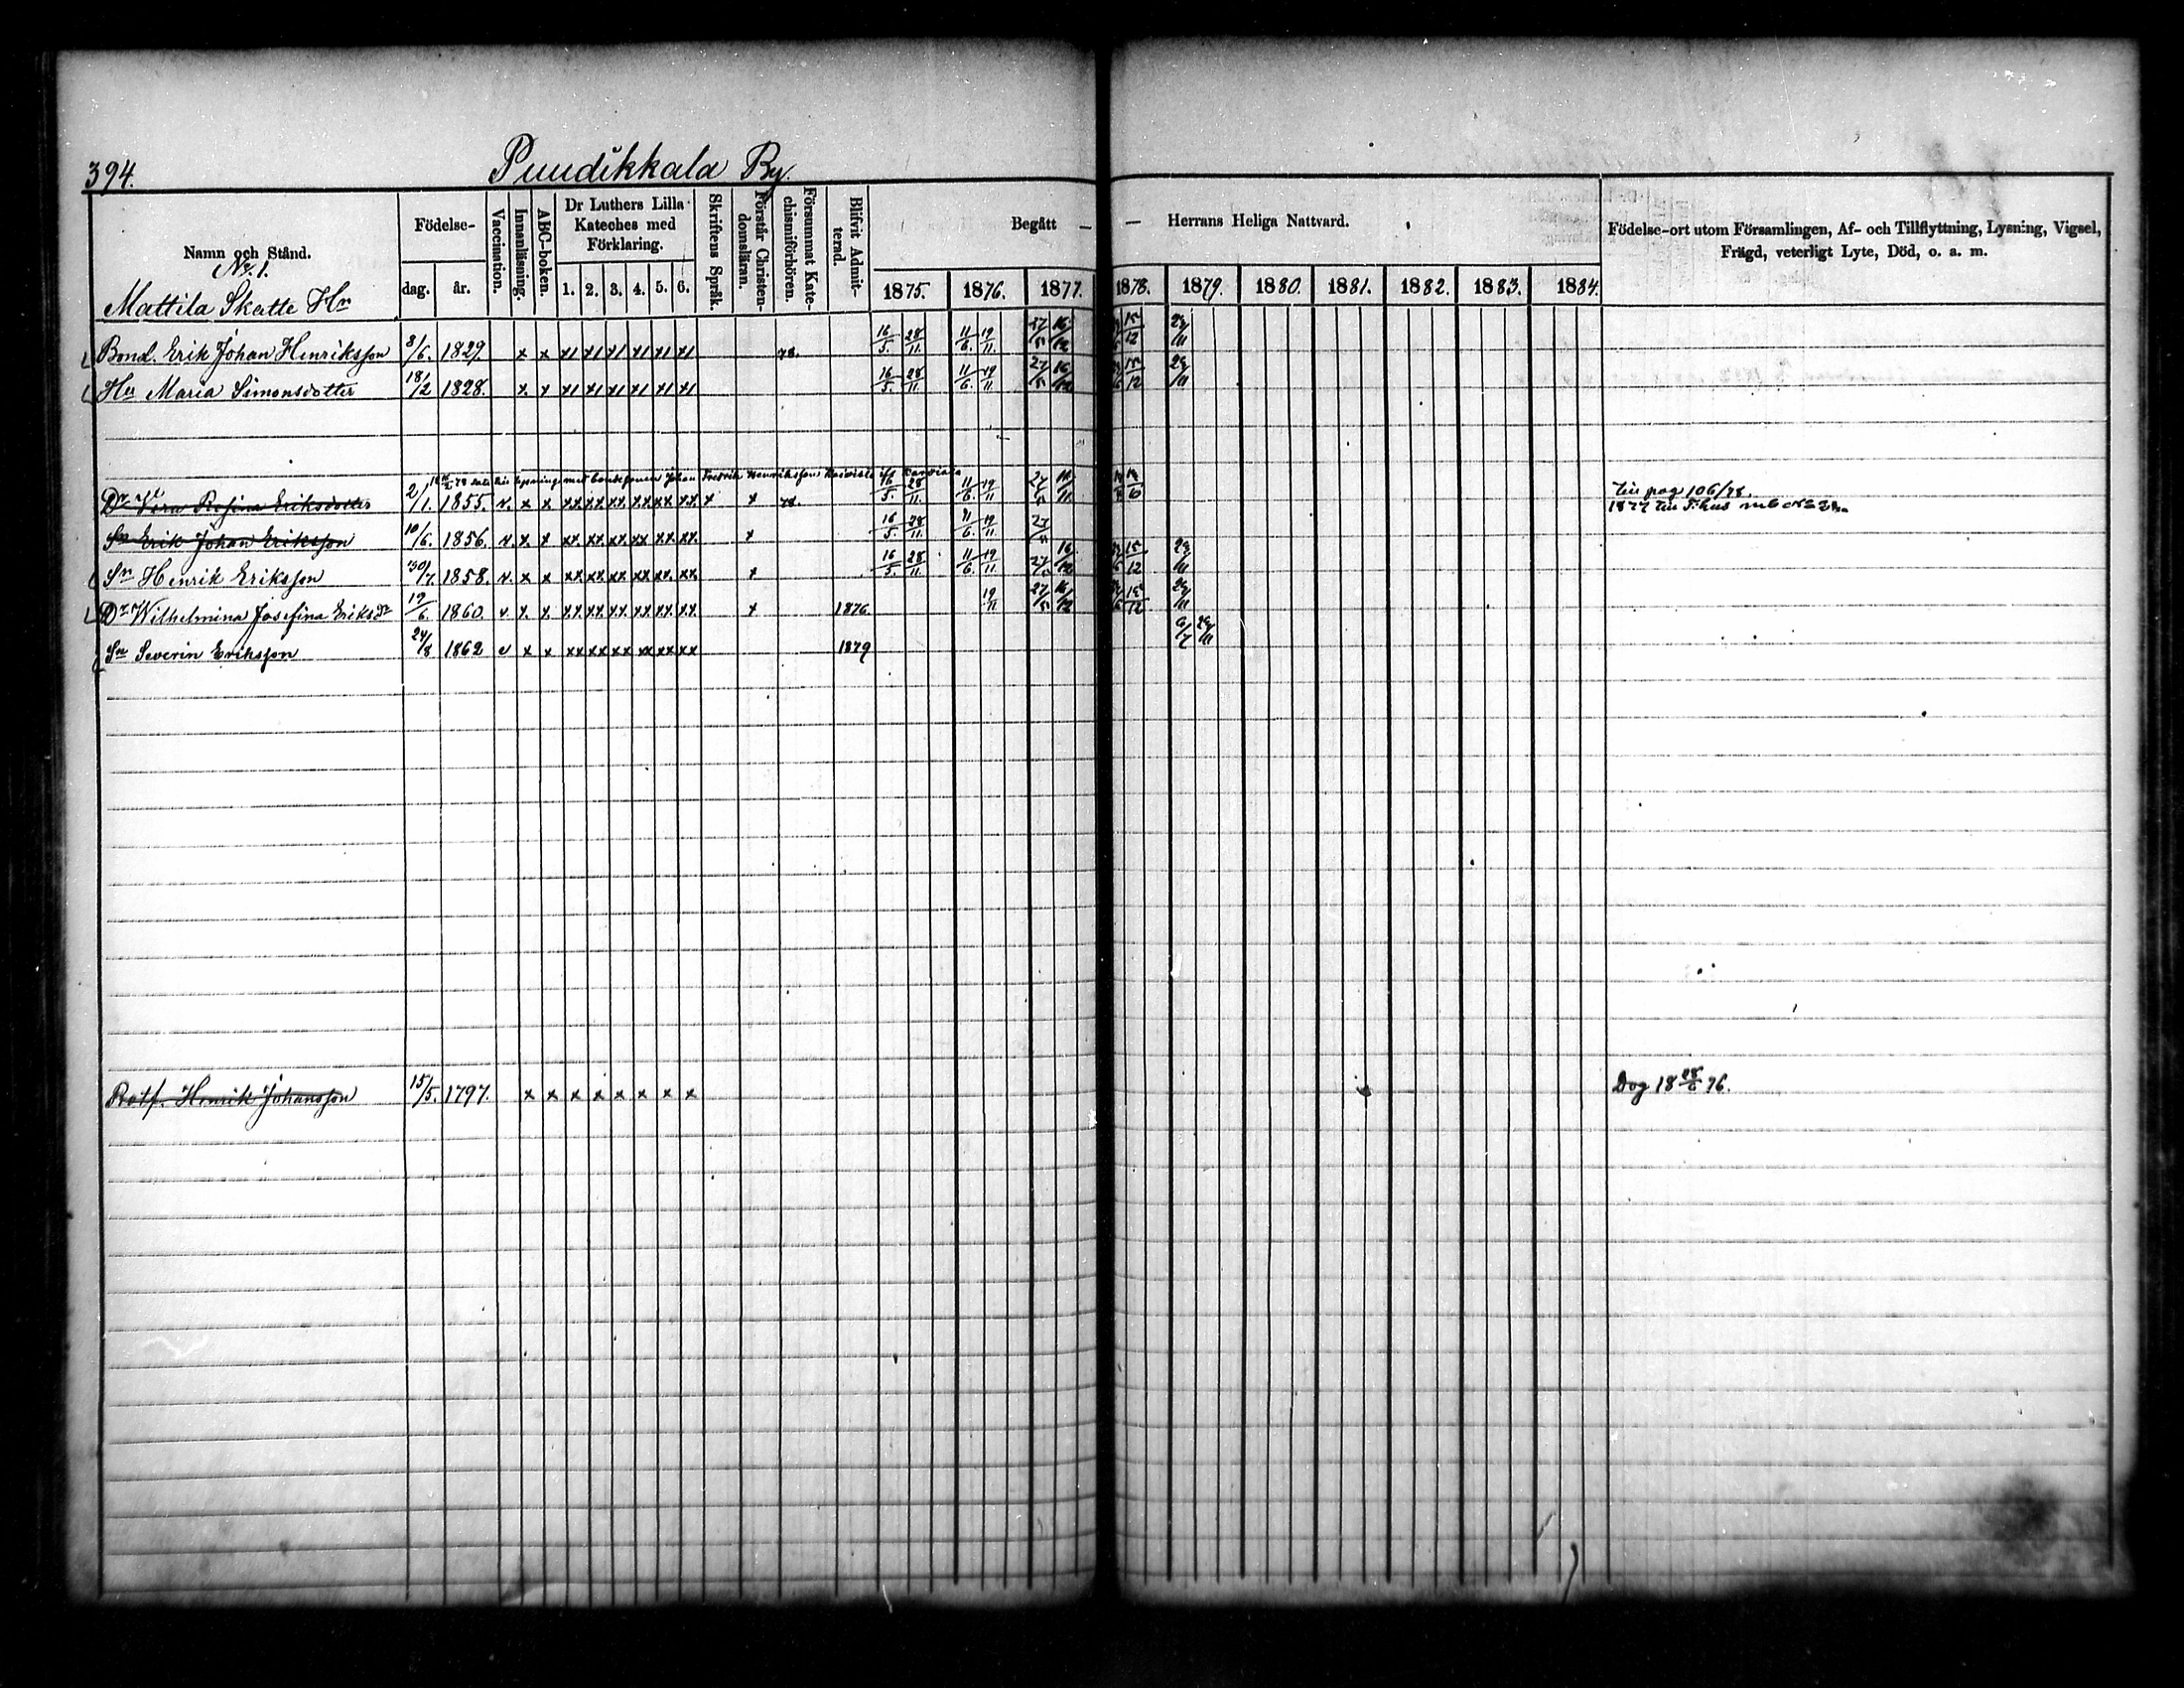 394.
Puudikkala By.
Namn och Stånd.
Födelse-
dag.
år.
Vaccination.
Innanläsning.
ABC-boken.
Dr Luthers Lilla Kateches med Förklaring.
1. 2. 3. 4. 5. 6.
Skriftens Språk.
Förstår Christendomsläran.
Försummat Katechismiförhören.
Blifvit Admitterad.
Begått — — Herrans Heliga Nattvard.
1875. 1876. 1877. 1878. 1879. 1880. 1881. 1882. 1883. 1884.
Födelse-ort utom Församlingen, Af- och Tillflyttning, Lysning, Vigsel,
Frägd, veterligt Lyte, Död, o. a. m.
No. 1.
Mattila Skatte Hn
Bond. Erik Johan Henriksson 8/6. 1829. x x 16/5. 28/11. 11/6. 19/11. 27/5 16/12 15/12
Hu Maria Simonsdotter 18/2 1828. x x 16/5. 28/11. 11/6. 19/11 27/5 16/12 15/12
Johan Fredrik Henriksson
Dr Rosina Eriksdotter 2/1. 1855. v. x x xx xx xx xx xx xx x x 16/5. 28/11. 11/6. 19/11.
Till pag 106/78.
Sn Erik Johan Eriksson 10/6. 1856. v. x. x xx. xx. xx. xx xx. xx. x 16/5. 28/11. 11/6. 19/11. 27/5
Sn Henrik Eriksson 30/7. 1858. v. x x xx xx. xx. xx. xx. xx. x 16/5. 28/11. 11/6. 19/11. 27/5 16/12 15/12
Dr Wilhelmina Josefina Eriksdr 19/6 1860. v. x. x xx. xx. xx. xx. xx. xx. x 1876. 19/11 27/5 16/12
Sn Severin Eriksson 24/8 1862 v x x xx xx xx xx xx xx 1879
Rotf. Henrik Johansson 15/5. 1797. x x x x x x x x Dog 18 28/6 76.